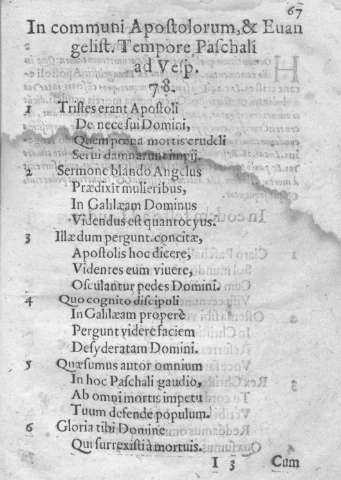 67
In communi Apostolorum, & Euan
gelist. Tempore Paschali
ad Vesp.
78.
1 Tristes erant Apostoli
De nece sui Domini,
Quem pœna mortis crudeli
Serui damnarunt impij.
2 Sermone blando Angelus
Prædixit mulieribus,
In Galilæam Dominus
Videndus est quantocyus.
3 Illæ dum pergunt concitæ,
Apostolis hoc dicere,
Videntes eum viuere,
Osculantur pedes Domini.
4 Quo cognito discipuli
In Galilæam properè
Pergunt videre faciem
Desyderatam Domini.
5 Quæsumus autor omnium
In hoc Paschali gaudio,
Ab omni mortis impetu
Tuum defende populum.
6 Gloria tibi Domine
Qui surrexisti à mortuis.
I 3 Cum